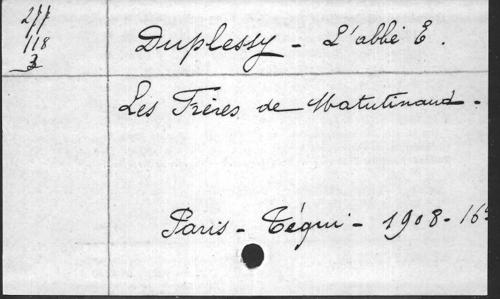 277
118
3
Duplessy - L'abbé E.
Les Frères de Matutinaud -
Paris - Téqui - 1908 - 16°